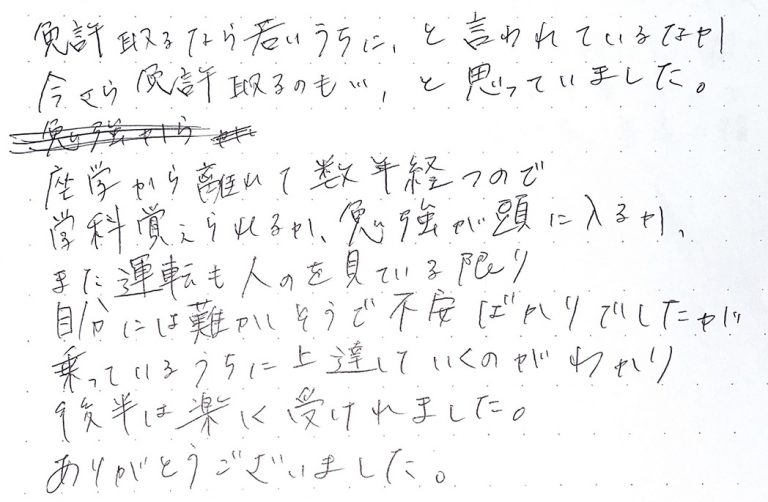 免許取るなら若いうちに、と言われているなか
今さら免許取るのも…、と思っていました。
勉強から
座学から離れて数年経つので
学科覚えられるか、勉強が頭に入るか、
また運転も人のを見ている限り
自分には難かしそうで不安ばかりでしたが
乗っているうちに上達していくのがわかり
後半は楽しく受けれました。
ありがとうございました。